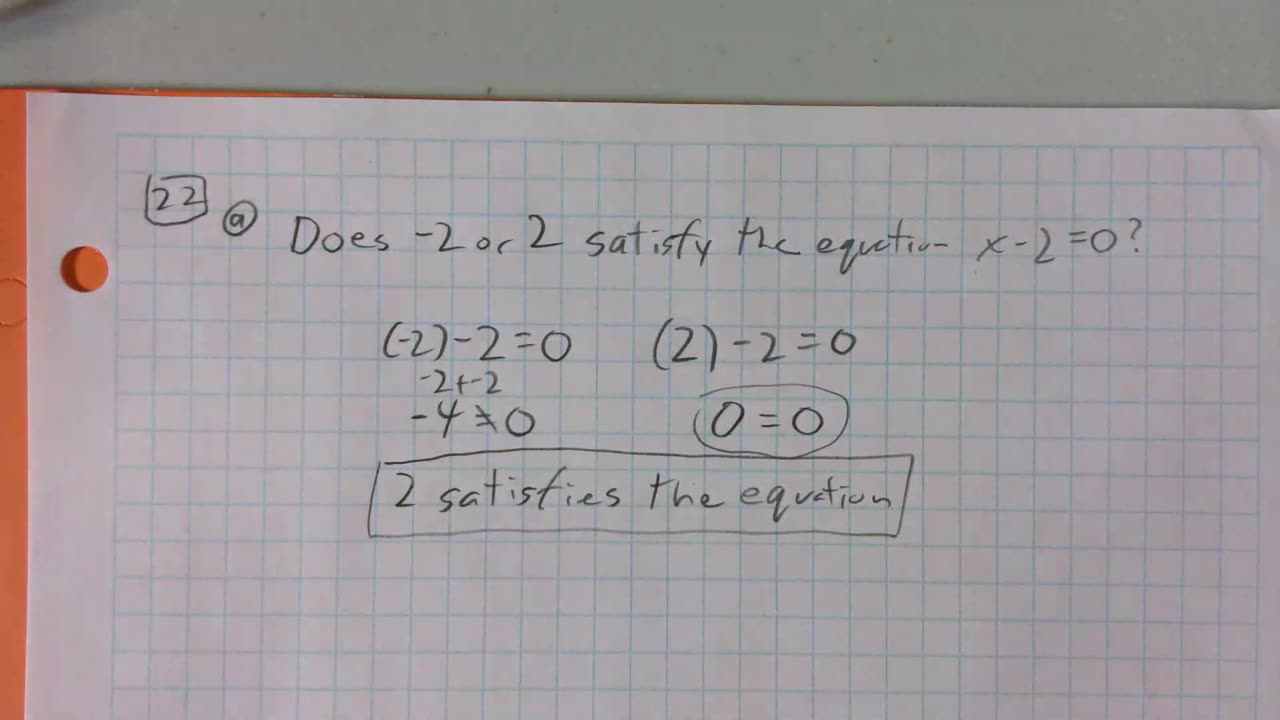 22 a Does -2 or 2 satisfy the equation x-2=0?
(-2)-2=0 (2)-2=0
-2+-2
-4≠0 0=0
2 satisfies the equation